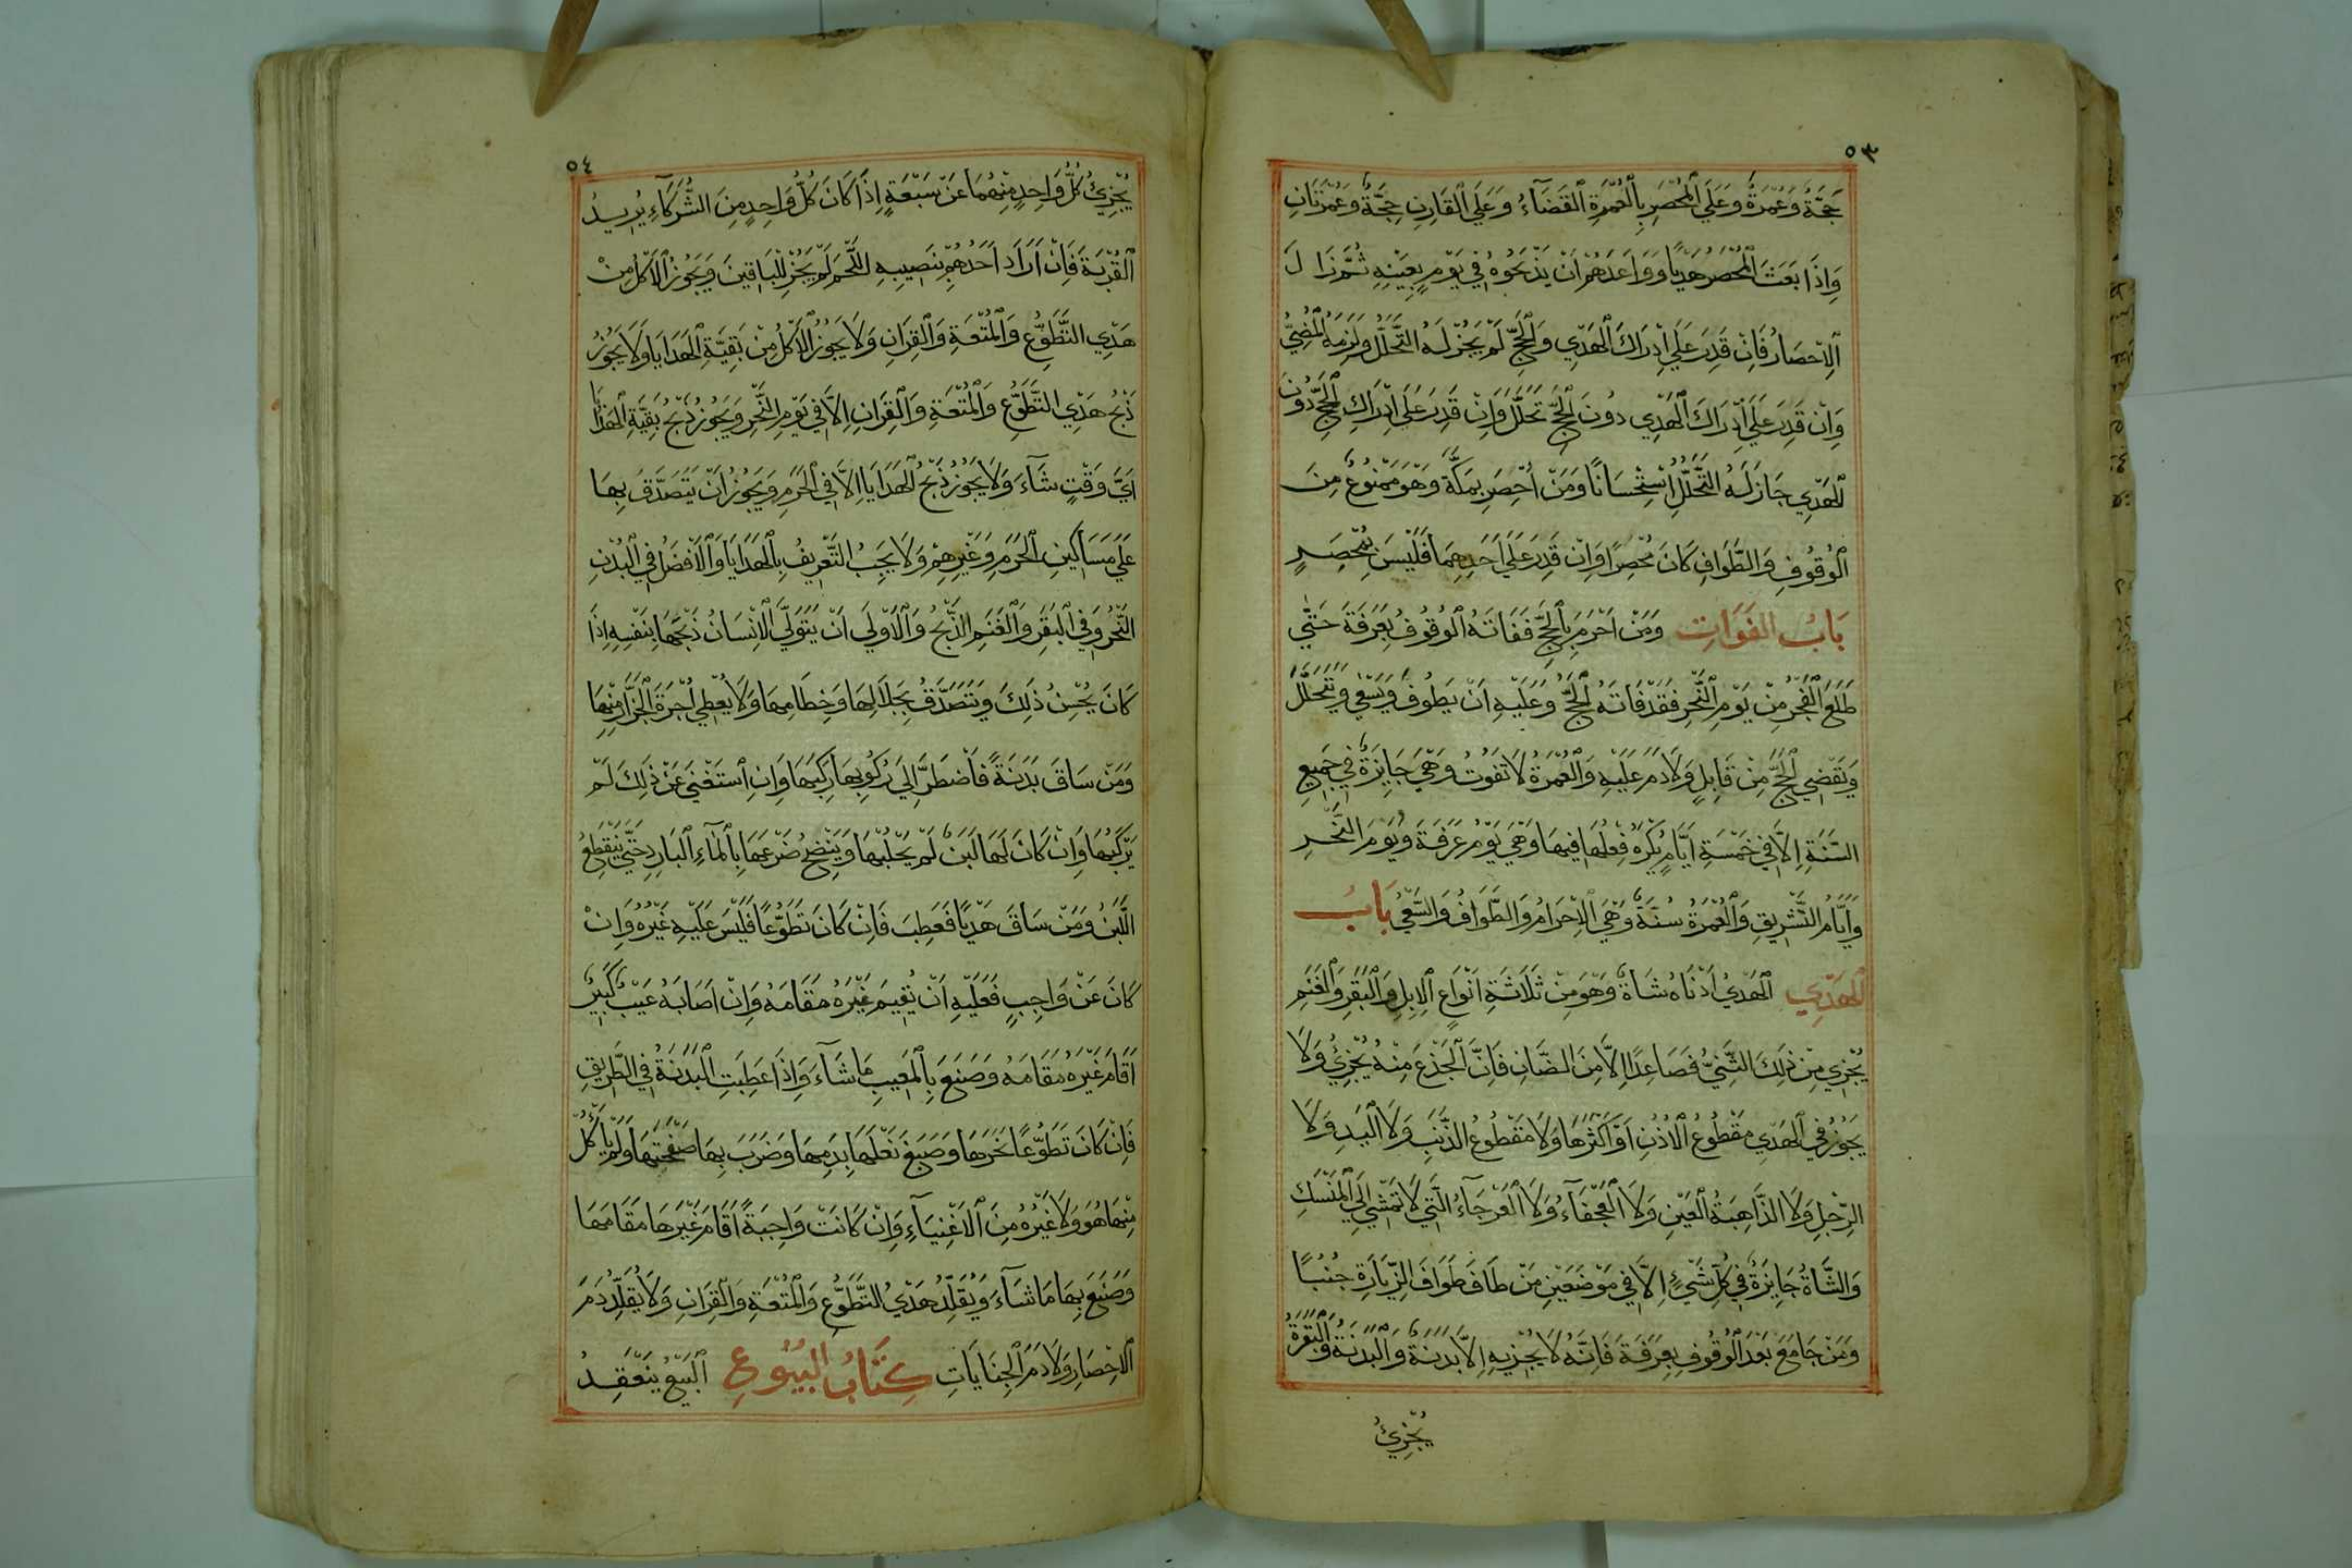 ٥٣
حَجَّةٌ وَعُمْرَةٌ وَعَلَى الْمُحْصَرِ بِالْعُمْرَةِ الْقَضَاءُ وَعَلَى الْقَارِنِ حِجَّةٌ وَعُمْرَتَانِ
وَاِذَا بَعَثَ الْمُحْصَرُ هَدْيًا وَوَاعَدَهُمْ اَنْ يَذْبَحُوهُ فِي يَوْمٍ بِعَيْنِهِ ثُمَّ زَالَ
الْاِحْصَارُ فَاِنْ قَدِرَ عَلَى اِدْرَاكَ الْهَدْيِ وَالْحَجِّ لَمْ يَجُزْ لَهُ التَّحَلُّلُ وَلَزِمَهُ الْمُضِيُّ
وَاِنْ قَدِرَ عَلَى اِدْرَاكَ الْهَدْيِ دُونَ الْحَجِّ تَحَلَّلَ وَاِنْ قَدِرَ عَلَى اِدْرَاكِ الْحَجِّ دُونَ
الْهَدْيِ جَازَ لَهُ التَّحَلُّلُ اسْتِحْسَانًا وَمَنْ اُحْصِرَ بِمَكَّةَ وَهُوَ مَمْنُوعٌ مِنَ
الْوُقُوفِ وَالطَّوَافِ كَانَ مُحْصِرًا وَاِنْ قَدِرَ عَلَى اَحَدِهِمَا فَلَيْسَ بِمُحْصَرٍ
بَابُ الْفَوَاتِ وَمَنْ اَحْرَمَ بِالْحَجِّ فَفَاتَهُ الْوُقُوفُ بِعَرَفَةَ حَتَّى
طَلَعَ الْفَجْرُ مِنْ يَوْمِ النَّحْرِ فَقَدْ فَاتَهُ الْحَجُّ وَعَلَيْهِ اَنْ يَطُوفَ وَيَسْعَى وَيَتَحَلَّلَ
وَيَقْضِي الْحَجَّ مِنْ قَابِلٍ وَلَا دَمَ عَلَيْهِ وَالْعُمْرَةُ لَا تَفُوتُ وَهِيَ جَايِزَةٌ فِي جَمِيعِ
السَّنَةِ اِلَّا فِي خَمْسَةِ اَيَّامٍ يُكْرَهُ فِعْلُهَا فِيهَا وَهِيَ يَوْمُ عَرَفَةَ وَيَوْمَ النَّحْرِ
وَاَيَّامُ التَّشْرِيقِ وَالْعُمْرَةُ سُنَّةٌ وَهِيَ الْاِحْرَامُ وَالطَّوَافُ وَالسَّعْيُ بَابُ
الْهَدْيِ الْهَدْيُ اَدْنَاهُ شَاةٌ وَهُوَ مِنْ ثَلَاثَةِ اَنْوَاعٍ الْاِبِلِ وَالْبَقَرِ وَالْغَنَمِ
يُجْزِي مِنْ ذَلِكَ الثَّنِيُّ فَصَاعِدًا اِلَّا مِنَ الضَّانِ فَاِنَّ الْجَذْعَ مِنْهُ يُجْزِئُ وَلَا
يَجُوزُ فِي الْهَدْيِ مَقْطُوعُ الْاُذُنِ اَوْ اَكْثَرُهَا وَلَا مَقْطُوعُ الذَّنَبِ وَلَا الْيَدِ وَلَا
الرِّجْلِ وَلَا الذَّاهِبَةُ الْعَيْنِ وَلَا الْعَجْفَاءُ وَلَا الْعَرْجَاءُ الَّتِي لَا تَمْشِي اِلَى الْمَنْسَكِ
وَالشَّاةُ جَايِزَةٌ فِي كُلِّ شَيْءٍ اِلَّا فِي مَوْضَعَيْنِ مَنْ طَافَ طَوَافَ الزِّيَارَةِ جُنُبًا
وَمَنْ جَامَعَ بَعْدَ الْوُقُوفِ بِعَرَفَةَ فَاِنَّهُ لَا يُجْزِيهِ اِلَّا بَدَنَةٌ وَالْبَدَنَةُ وَالْبَقَرَةُ
يُجْزِئُ
٥٤
يُجْزِئُ كُلُّ وَاحِدٍ مِنْهُمَا عَنْ سَبْعَةٍ اِذَا كَانَ كُلُّ وَاحِدٍ مِنَ الشُّرَكَاءِ يُرِيدُ
الْقُرْبَةَ فَاِنْ اَرَادَ اَحَدُهُمْ بِنَصِيبِهِ اللَّحْمَ لَمْ يَجُزْ لِلْبَاقِينَ وَيَجُوزُ الْاَكْلُ مِنْ
هَدْيِ التَّطَوُّعِ وَالْمُتْعَةِ وَالْقِرَانِ وَلَا يَجُوزُ الْاَكْلُ مِنْ بَقِيَّةِ الْهَدَايَا وَلَا يَجُوزُ
ذَبْحُ هَدْيِ التَّطَوُّعِ وَالْمُتْعَةِ وَالْقِرَانِ اِلَّا فِي يَوْمِ النَّحْرِ وَيَجُوزُ ذَبْحُ بَقِيَّةِ الْهَدَايَا
اَيَّ وَقْتٍ شَاءَ وَلَا يَجُوزُ ذَبْحُ الْهَدَايَا اِلَّا فِي الْحَرَمِ وَيَجُوزُ اَنْ يَتَصَدَّقَ بِهَا
عَلَى مَسَاكِينِ الْحَرَمِ وَغَيْرِهِمْ وَلَا يَجِبُ التَّعْرِيفُ بِالْهَدَايَا وَالْاَفْضَلُ فِي الْبُدْنِ
النَّحْرُ وَفِي الْبَقَرِ وَالْغَنَمِ الذَّبْحُ وَالْاَوْلَى اَنْ يَتَوَلَّى الْاِنْسَانُ ذَبْحَهَا بِنَفْسِهِ اِذَا
كَانَ يُحْسِنُ ذَلِكَ وَيَتَصَدَّقُ بِجِلَالِهَا وَخِطَامِهَا وَلَا يُعْطِي اُجْرَةَ الْجَزَّارِ مِنْهَا
وَمَنْ سَاقَ بَدَنَةً فَاضْطَرَّ اِلَى رُكُوبِهَا رَكِبَهَا وَاِنِ اسْتَغْنَى عَنْ ذَلِكَ لَمْ
يَرْكَبْهَا وَاِنْ كَانَ لَهَا لَبَنٌ لَمْ يَحْلُبْهَا وَيَنْضَحُ ضَرْعَهَا بِالْمَاءِ الْبَارِدِ حَتَّى يَنْقَطِعَ
اللَّبَنُ وَمَنْ سَاقَ هَدْيًا فَعَطِبَ فَاِنْ كَانَ تَطَوُّعًا فَلَيْسَ عَلَيْهِ غَيْرُهُ وَاِنْ
كَانَ عَنْ وَاجِبٍ فَعَلَيْهِ اَنْ يُقِيمَ غَيْرَهُ مَقَامَهُ وَاِنْ اَصَابَهُ عَيْبٌ كَبِيرٌ
اَقَامَ غَيْرَهُ مَقَامَهُ وَصَنَعَ بِالْمَعِيبِ مَا شَاءَ وَاِذَا عَطِبَتِ الْبَدَنَةُ فِي الطَّرِيقِ
فَاِنْ كَانَ تَطَوُّعًا نَحَرَهَا وَصَبَغَ نَعْلَهَا بِدَمِهَا وَضَرَبَ بِهَا صَفْحَتَهَا وَلَمْ يَاْكُلْ
مِنْهَا هُوَ وَلَا غَيْرُهُ مِنَ الْاَغْنِيَاءِ وَاِنْ كَانَتْ وَاجِبَةً اَقَامَ غَيْرَهَا مَقَامَهَا
وَصَنَعَ بِهَا مَا شَاءَ وَيُقَلِّدُ هَدْيُ التَّطَوُّعِ وَالْمُتْعَةِ وَالْقِرَانِ وَلَا يُقَلِّدُ دَمَ
الْاِحْصَارِ وَلَا دَمَ الْجِنَايَاتِ كِتَابُ الْبُيُوعِ الْبَيْعُ يَنْعَقِدُ